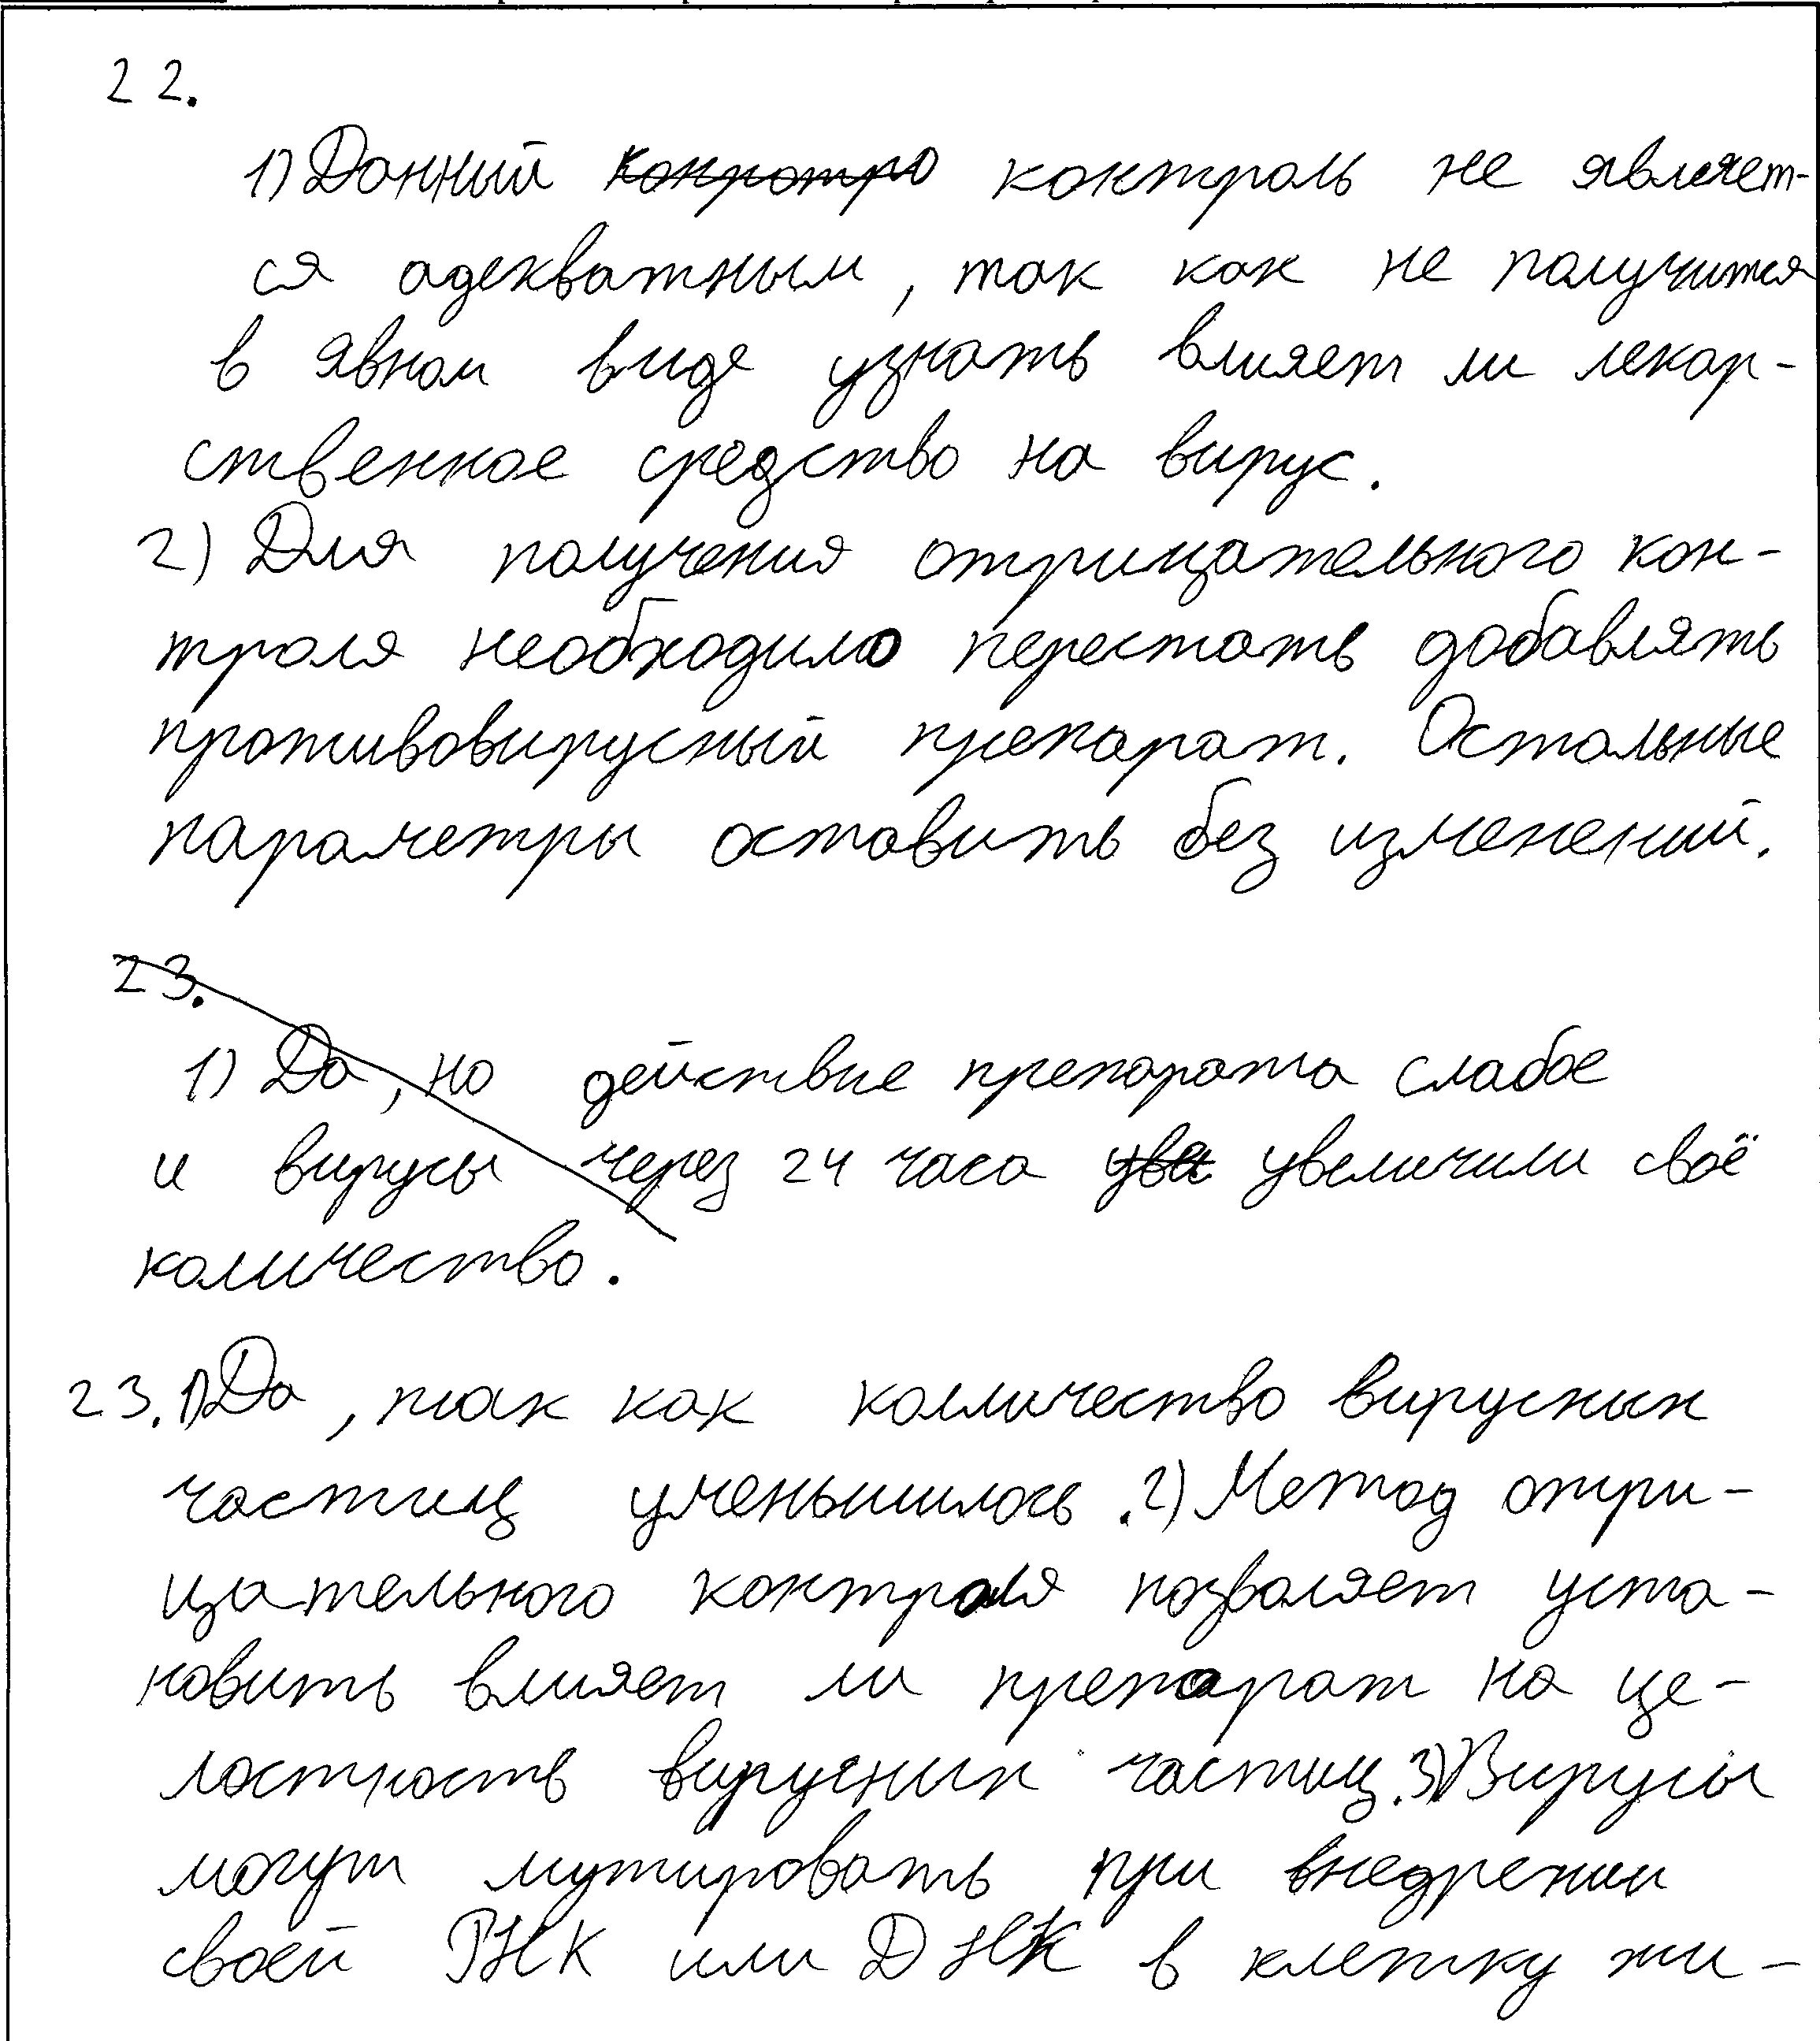 22.
1) Данный ~~конротро~~ контроль не являет-
ся адекватным, так как не получится
в явном виде узнать влияет ли лекар-
ственное средство на вирус.
2) Для получения отрицательного кон-
троля необходимо перестать добавлять
противовирусный препарат. Остальные
параметры оставить без изменений.
23.
1) Да, но действие препарата слабое
и вирусы через 24 часа ~~уве~~ увеличили своё
количество.
23. 1) Да, так как колличество вирусных
частиц уменьшилось. 2) Метод отри-
цательного контроля позволяет уста-
новить влияет ли препарат на це-
лостность вирусных частиц. 3) Вирусы
могут мутировать при внедрении
своей РНК или ДНК в клетку жи-